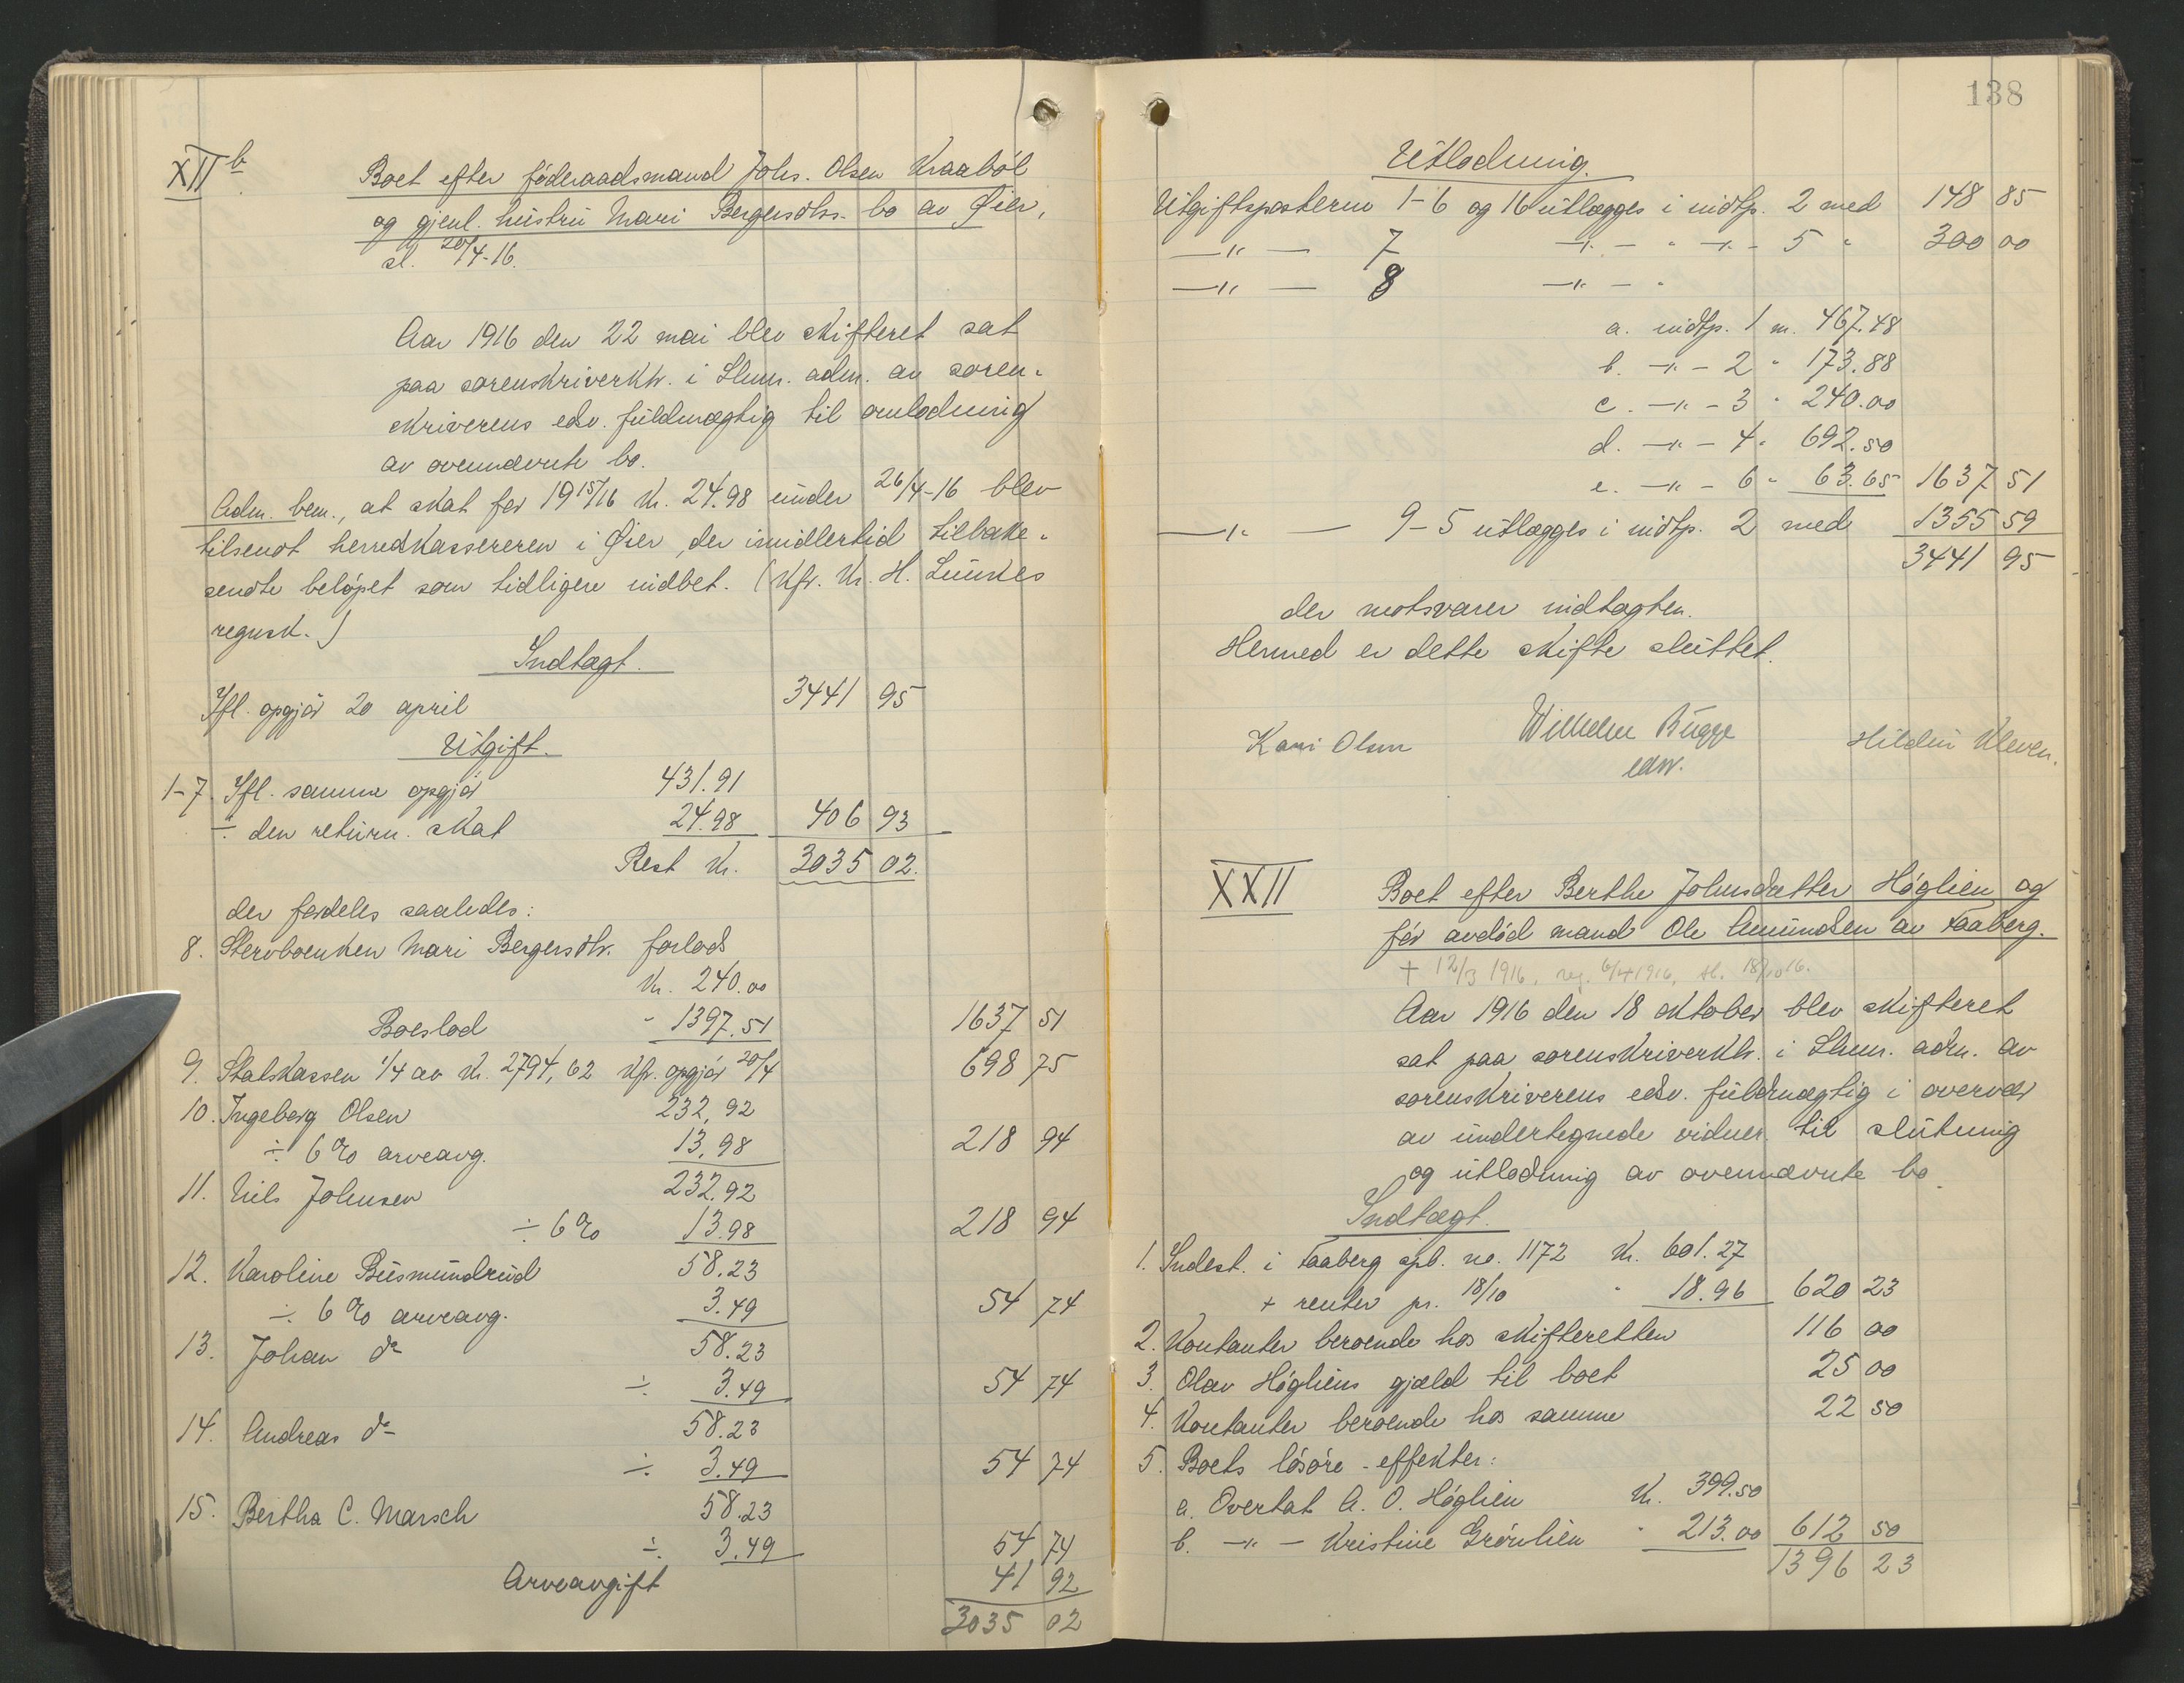 XII b
Boet efter föderaadsmand Johs. Olsen Kraaböl
og gjenl. hustru Mari Bergersdtr. bo av Øier,
sl. 20/4-16.
Aar 1916 den 22 mai blev skifteret sat
paa sorenskriverktr. i Lhmr. adm. av soren-
skriverens edsv. fuldmægtig til omlodning
av ovennævnte bo.
Adm. bem., at skat for 1915/16 Kr. 24.98 under 26/4-16 blev
tilsendt herredskassereren i Øier, der imidlertid tilbake-
sendte beløpet som tidligere indbet. (Kfr. Kr. H. Lunkes
regnsk.)
Indtægt.
Ifl. opgjör 20 april 3441 95
Utgift.
1-7 Ifl. samme opgjör 431.91
÷ den return. skat 24.98 406 93
Rest Kr. 3035 02.
der fordeles saaledes:
8. Stervboenken Mari Bergersdtr. forlods
Kr. 240.00
Boeslod " 1397.51 1637 51
9. Statskassen 1/4 av Kr. 2794,62 Kfr. opgjör 20/4 698 75
10. Ingeborg Olsen 232,92
÷ 6% arveavg. 13,98 218 94
11. Nils Johnsen 232.92
÷ 6% 13.98 218 94
12. Karoline Busmundrud 58.23
÷ 6% arveavg. 3.49 54 74
13. Johan do 58.23
÷ 3.49 54 74
14. Andreas do 58.23
÷ 3.49 54 74
15. Bertha C. Marsch 58.23
÷ 3.49 54 74
Arveavgift 41 92
3035 02
138
Utlodning.
Utgiftsposterne 1-6 og 16 utlægges i indtp. 2 med 148 85
—"— 7 —"— " —"— 5 " 300 00
—"— 8 —"— "
a. indtp. 1 m. 467.48
b. —"— 2 " 173.88
c. —"— 3 " 240.00
d. —"— 4 " 692.50
e. —"— 6 " 63.65 1637 51
—"— 9-5 utlægges i indtp. 2 med 1355 59
3441 95
der motsvarer indtægten.
Hermed er dette skifte sluttet.
Kari Olsen Wilhelm Bugge Hildur Kleven.
edsv.
XXII
Boet efter Berthe Johnsdatter Höglien og
för avdöd mand Ole Amundsen av Faaberg.
+ 12/3 1916, reg. 6/4 1916, sl. 18/10 16.
Aar 1916 den 18 oktober blev skifteret
sat paa sorenskriverktr. i Lhmr. adm. av
sorenskriverens edsv. fuldmægtig i overvær
av undertegnede vidner til slutning
og utlodning av ovennævnte bo.
Indtægt.
1. Indest. i Faaberg spb. no. 1172 Kr. 601.27
+ renter pr. 18/10 " 18.96 620 23
2. Kontanter beroende hos skifteretten 116 00
3. Olav Högliens gjæld til boet 25 00
4. Kontanter beroende hos samme 22 50
5. Boets lösöre-effekter:
a. Overtat A. O. Höglien Kr. 399.50
b. —"— Kristine Grönlien " 213.00 612 50
1396 23